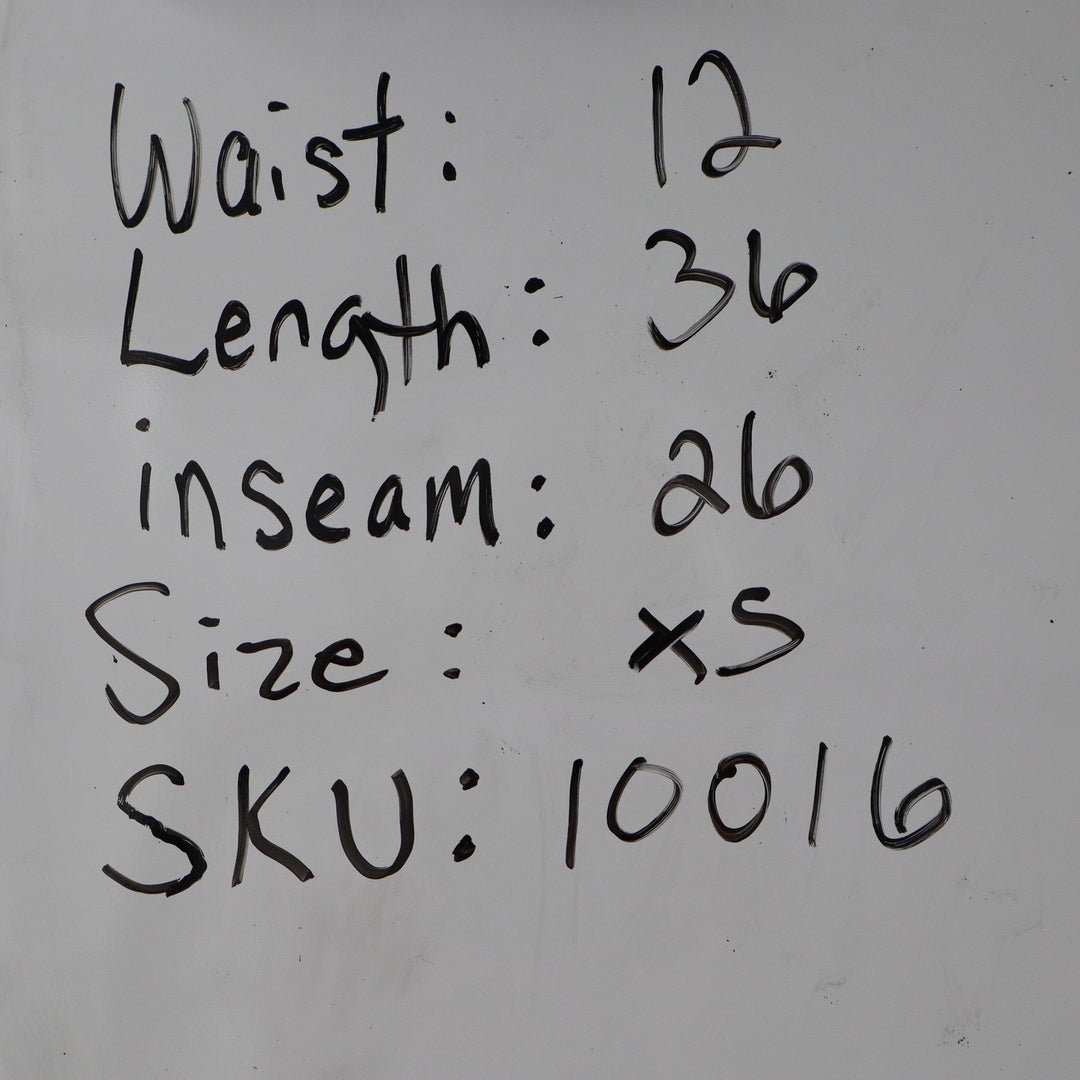 Waist: 12
Length: 36
inseam: 26
Size: xs
SKU: 10016